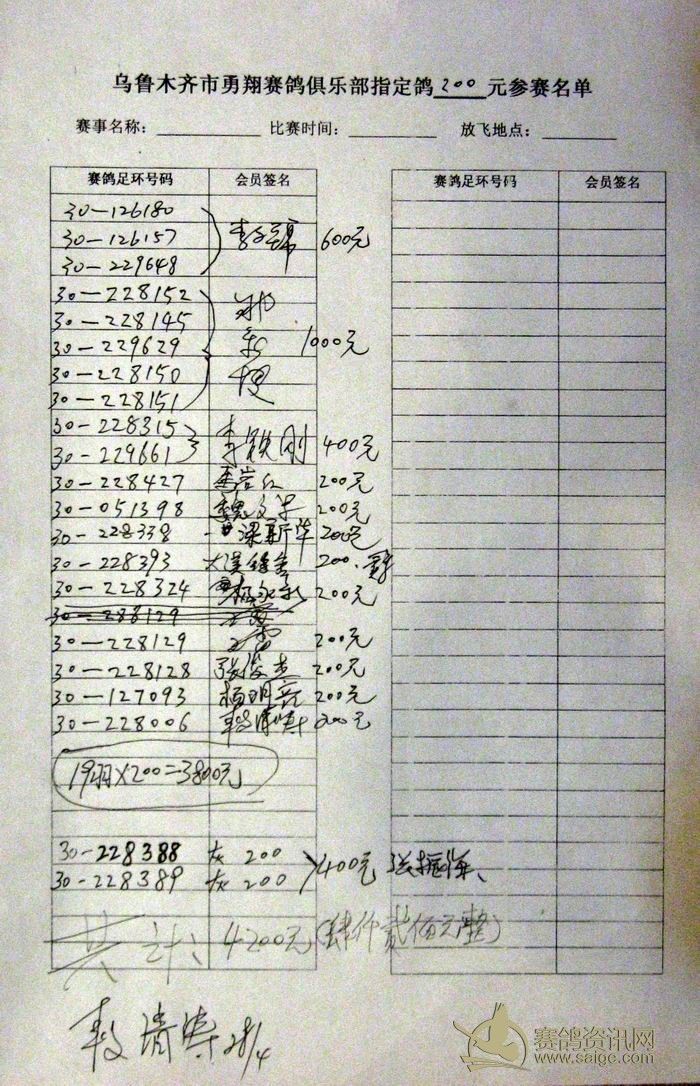 乌鲁木齐市勇翔赛鸽俱乐部指定鸽 200 元参赛名单
赛事名称： 比赛时间： 放飞地点：
赛鸽足环号码 会员签名 赛鸽足环号码 会员签名
30-126180
30-126157 600元
30-229648
30-228152
30-228145
30-229629 1000元
30-228150
30-228151
30-228315
30-229661 李铁刚 400元
30-228427 200元
30-051398 魏文 200元
30-228338 梁新华 200元
30-228393 200.
30-228324 杨永新 200元
30-228129
30-228129 200元
30-228128 张俊杰 200元
30-127093 杨明亮 200元
30-228006 200元
19羽×200=3800元
30-228388 灰 200
30-228389 灰 200 400元 张振海、
共计： 4200元（肆仟贰佰元整）
28/4
赛鸽资讯网
www.saige.com